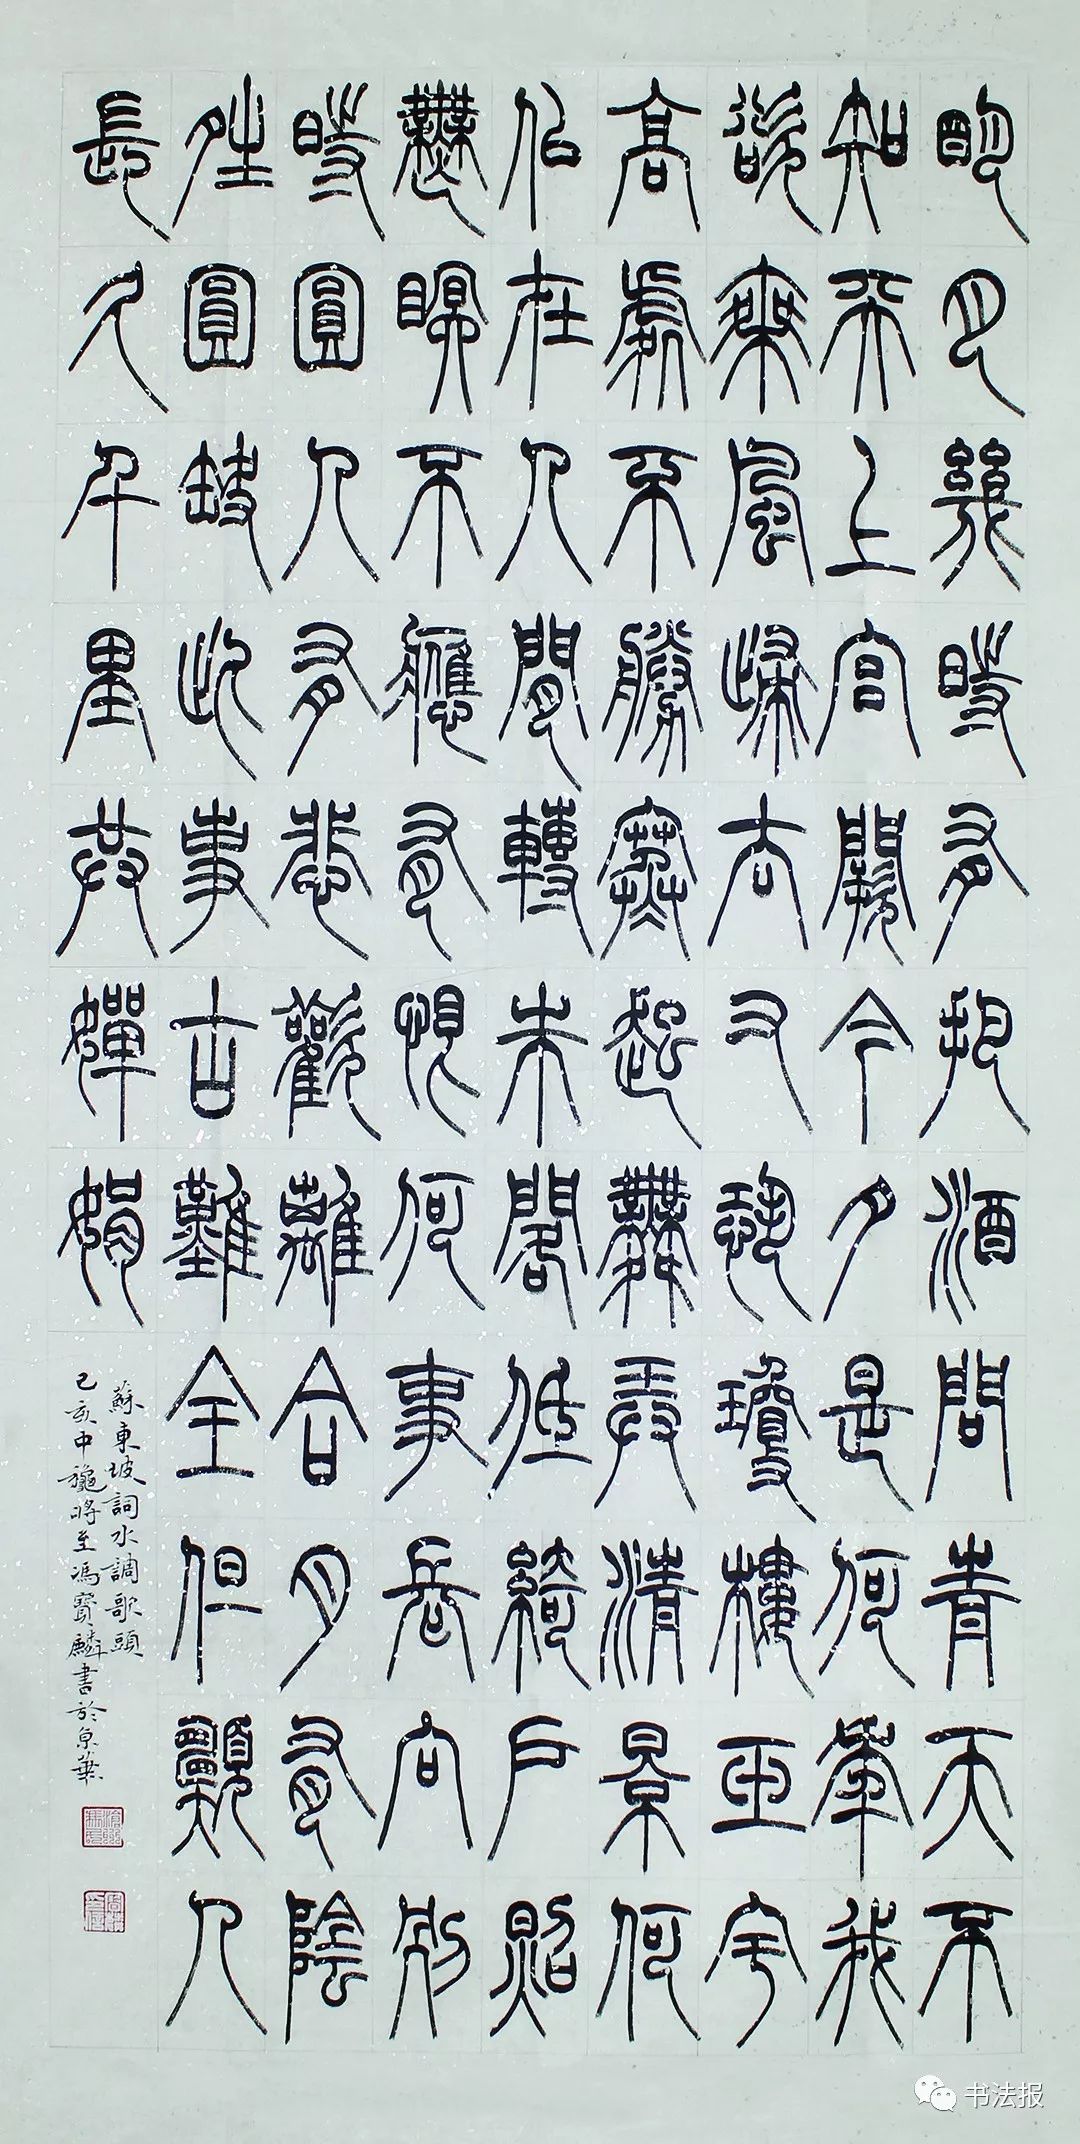 明月幾時有把酒問青天不
知天上宮闕今夕是何年我
欲乘風歸去又恐瓊樓玉宇
高處不勝寒起舞弄清景何
似在人間轉朱閣低綺戶照
無眠不應有恨何事長向別
時圓人有悲歡離合月有陰
晴圓缺此事古難全但願人
長久千里共嬋娟
蘇東坡詞水調歌頭
己亥中秋將至馮寶麟書於京華
书法报